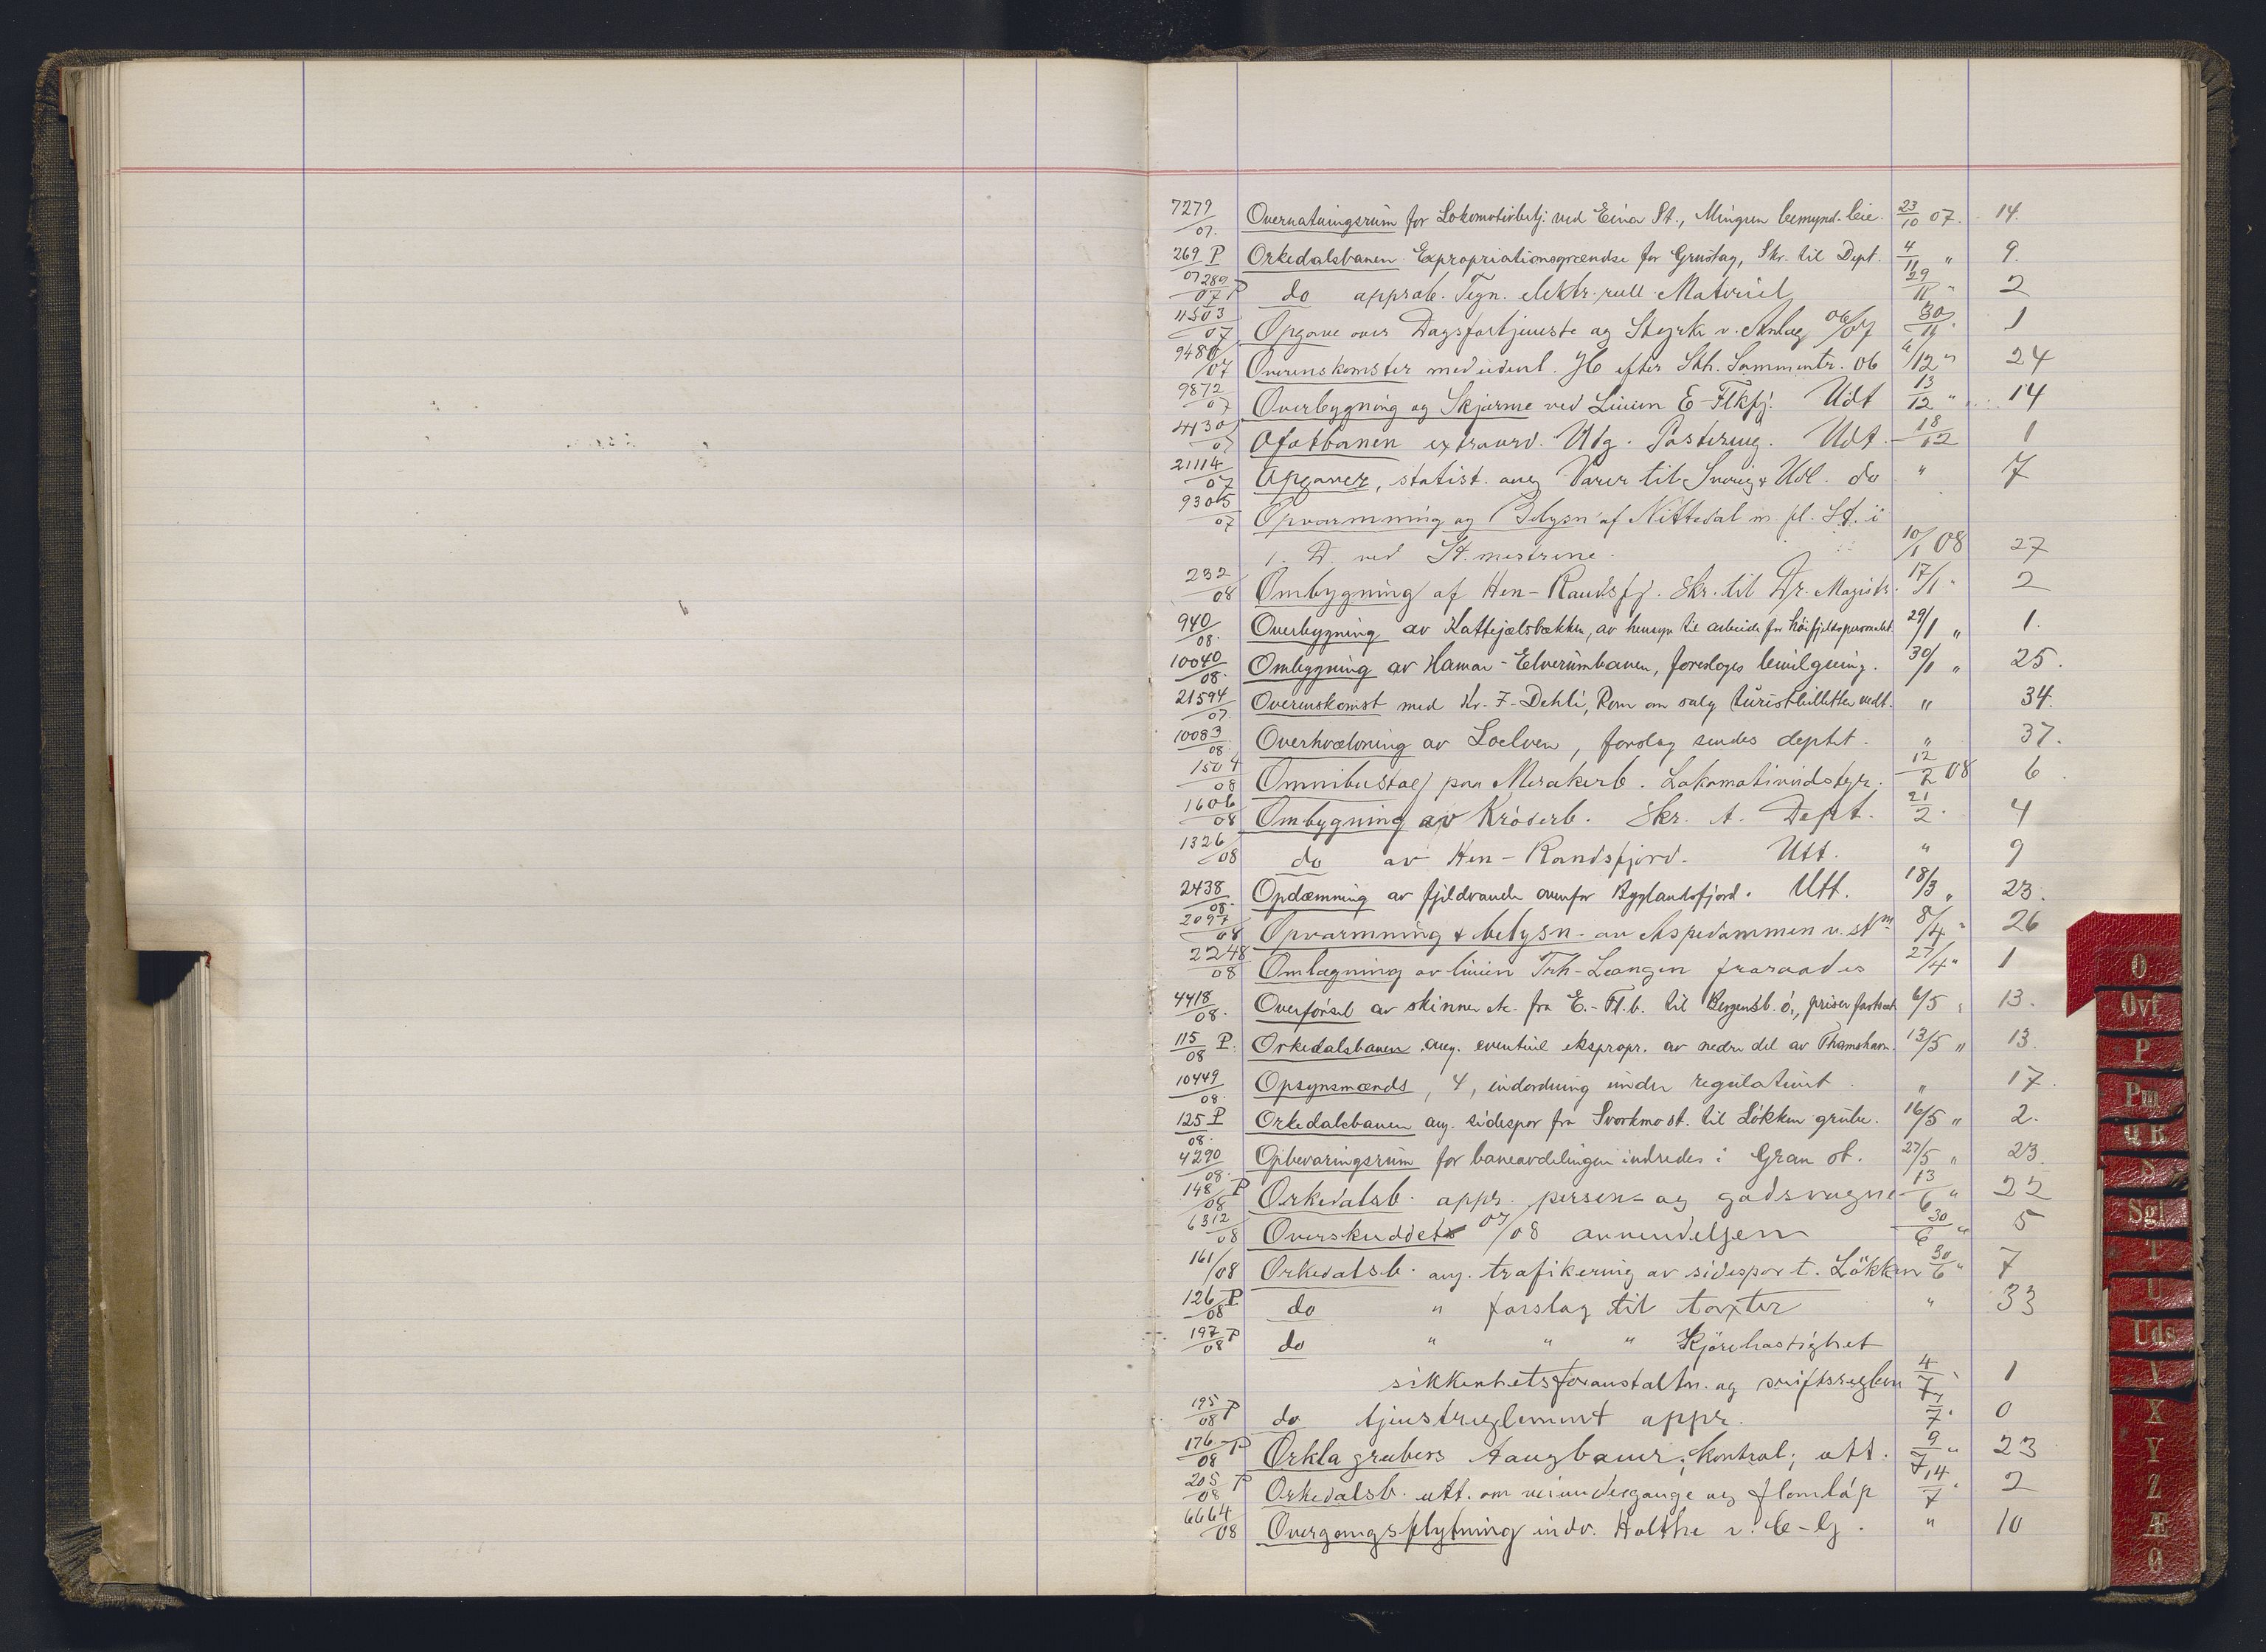 7279/07. Overnatningsrum for Lokomotivbetj. ved Eina St., Mingsen bemynd. leie. 23/10 07. 14.
269 P/07 Orkedalsbanen Expropriationsgrændse for Grustag, Skr. til Dept. 4/11 " 9.
289/07 P do approb. Tegn. elektr. rull. Materiel 29/11 " 2
11503/07 Opgave over Dagsfortjeneste og Styrke v. Anlæg 06/07 30/11 " 1
9480/07 Overenskomster med efter Sth. Sammentr. 06 6/12 " 24
9872/07 Overbygning og Skjærme ved Linien E-Flkfj. Udt 13/12 " 14
4130/07 Ofotbanen extraord. Utg. Postering. Udt. 18/12 1
21114/07 Opgaver, statist. ang Varer til Sverig & Udl. do " 7
9305/07 Opvarmning og Belysn. af Nittedal m. fl. St. i
1. D. ved St. mestrene. 10/1 08 27
232/08 Ombygning af Hen-Randsfj. Skr. til Dr. Magistr. 17/1 " 2
940/08. Overbygning av Kattejælsbækken, av hensyn til arbeide for høifjeldspersonalet. 29/1 " 1.
10040/08. Ombygging av Hamar-Elverumbanen, foreslages bevilgning. 30/1 " 25.
21594/07. Overenskomst med Kr. F. Dehli, Rom om salg turistbilletter vedt. " 34.
10083/08. Overhvælvning av Loelven, forslag sendes deptet. " 37.
1504/08 Omnibustog paa Merakerb. Lokomotivudstyr. 12/2 08 6.
1606/08 Ombygning av Krøderb. Skr. t. Dept. 21/2 " 4
1326/08 do av Hen-Randsfjord. Utt. " 9
2438/08. Opdæmning av fjeldvande ovenfor Byglandsfjord. Utt. 18/3 " 23.
2097/08 Opvarmning & belysn. av Aspedammen v. stm 8/4 " 26
2248/08 Omlægning av linien Trh-Leangen fraraades 27/4 " 1
4418/08. Overførsel av skinner etc. fra E.-Fl.b. til Bergensb. ö., priser fastsat 6/5 " 13.
115/08 P. Orkedalsbanen ang. eventuel ekspropr. av nedre del av Thamshavn. 13/5 " 13.
10449/08. Opsynsmænds, 4, indordning under regulativet. " 17.
125 P/08. Orkedalsbanen ang. sidespor fra Svorkmo st. til Løkken grube. 16/5 " 2.
4290/08. Opbevaringsrum for baneavdelingen indredes i Gran st. 27/5 " 23.
148/08 P Orkedalsb. appr. person- og godsvogne 13/6 " 22
6312/08 Overskuddet 07/08 anvendelsen 30/6 " 5
161/08 Orkedalsb. ang. trafikering av sidespor t. Løkken 30/6 " 7
126/08 P do " forslag til taxter " 33
197/08 P do " " " Kjørehastighet
sikkerhetsforanstaltn. og driftsreglem 4/7 " 1
195/08 P do tjenstreglement appr. 7/7 " 0
176/08 P Orkla grubers taugbaner; kontrol; utt. 9/7 " 23
205/08 P Orkedalsb. utt. om veiundergange og flomløp 14/7 " 2
6664/08 Overgangsflytning indv. Holthe v. C-Ej. " 10
O
Ovf
P
Pm
Q R
S
Sgl
T
U
Uds
V
X
Y
Z
Æ
Ø